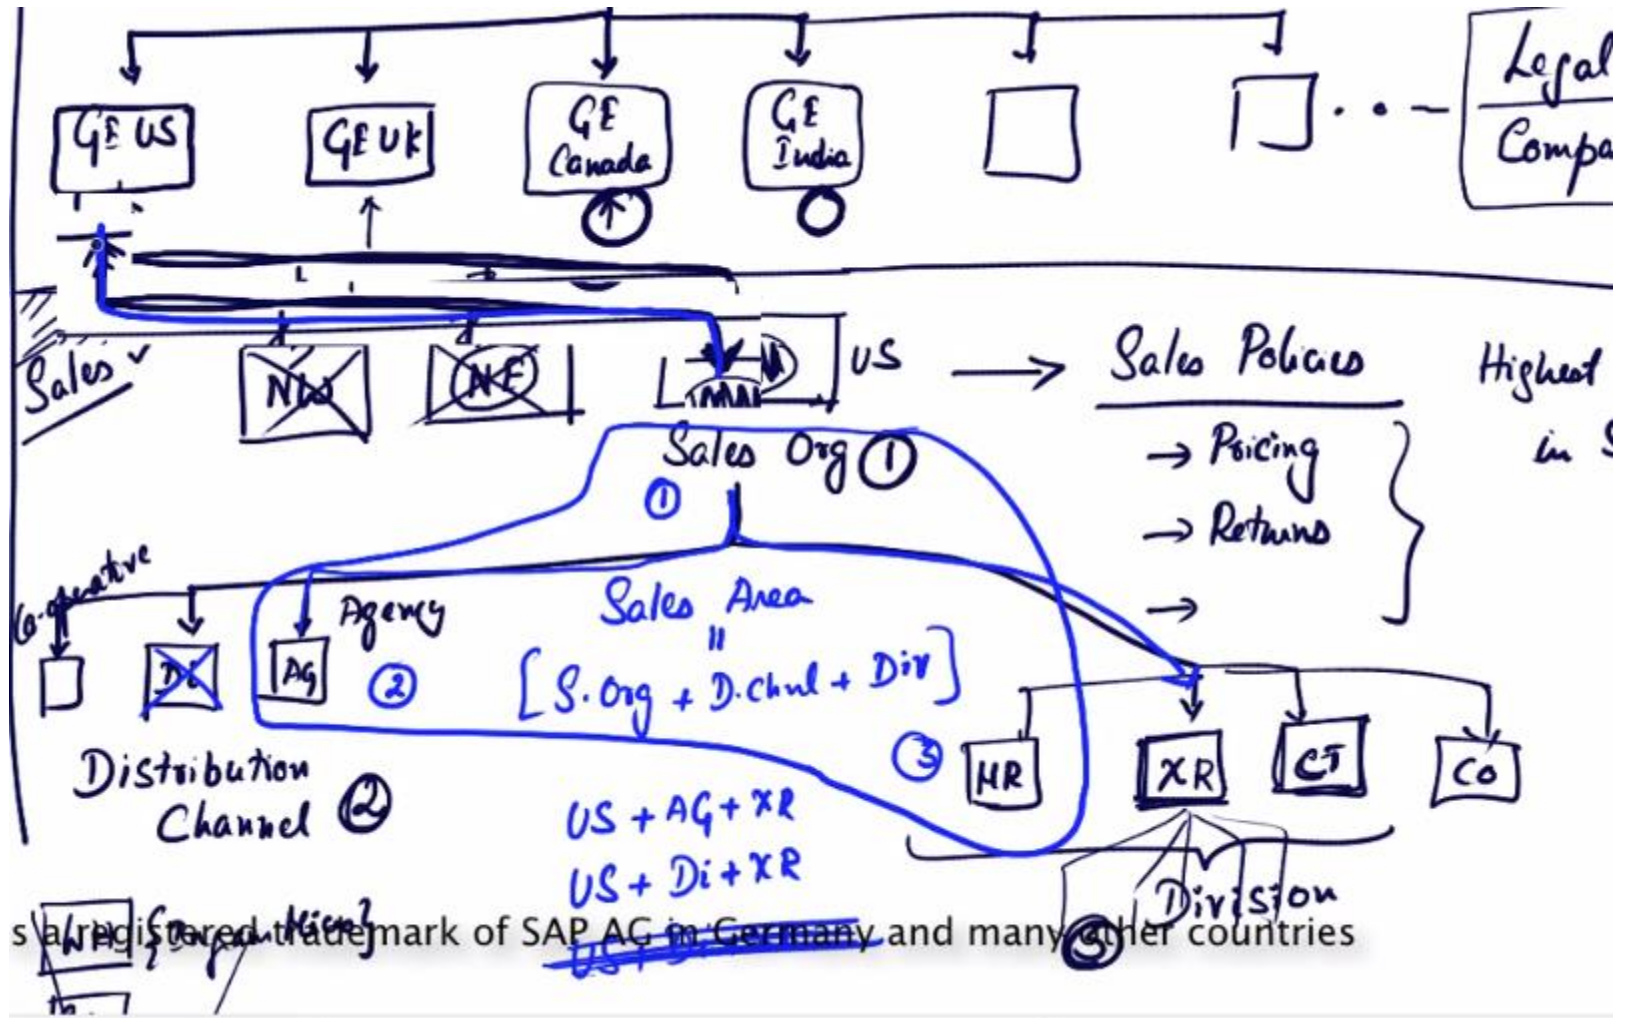 GE US
GE UK
GE
Canada
GE
India
Legal
Compa
Sales ✓
NW
NE
US
→ Sales Policies
Highest
in S
→ Pricing
→ Returns
→
Sales Org ①
①
Co-operative
Agency
Sales Area
=
[S.Org + D.Chnl + Div]
DI
AG
②
③
HR
XR
CT
CO
Distribution
Channel ②
US + AG + XR
US + Di + XR
US + Di
Division
③
WH
s a registered trademark of SAP AG in Germany and many other countries